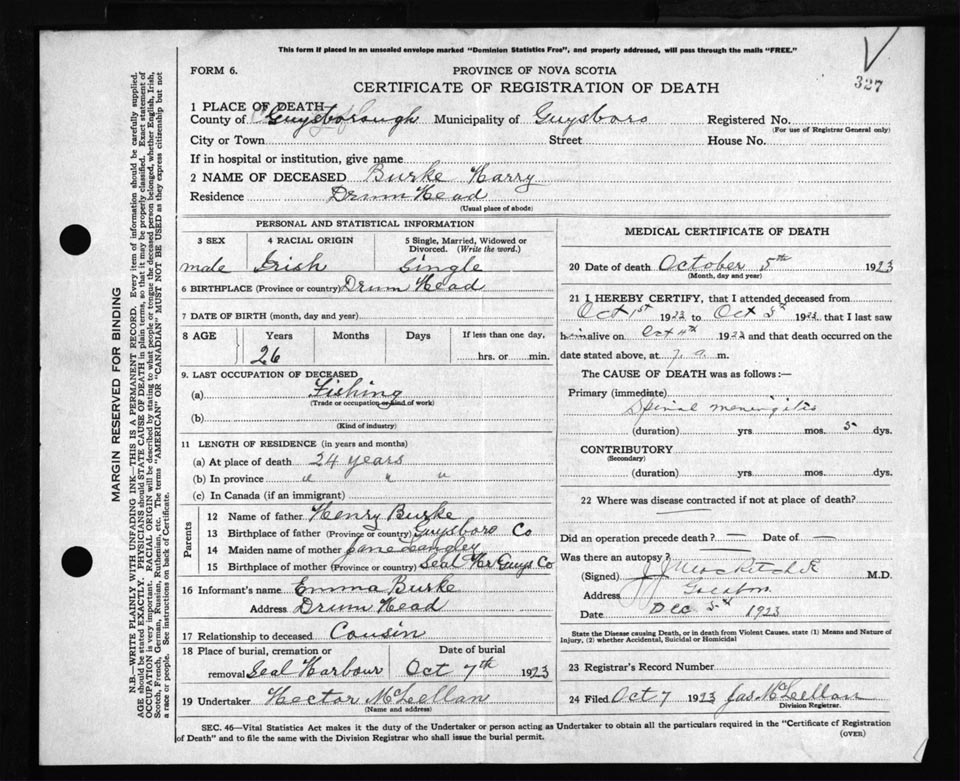 This form if placed in an unsealed envelope marked "Dominion Statistics Free", and properly addressed, will pass through the mails "FREE."
327
FORM 6.
PROVINCE OF NOVA SCOTIA
CERTIFICATE OF REGISTRATION OF DEATH
1 PLACE OF DEATH
County of Guysborough Municipality of Guysboro Registered No.
(For use of Registrar General only)
City or Town Street House No.
If in hospital or institution, give name
2 NAME OF DECEASED Burke Harry
Residence Drum Head
(Usual place of abode)
MARGIN RESERVED FOR BINDING
N.B.—WRITE PLAINLY WITH UNFADING INK—THIS IS A PERMANENT RECORD. Every item of information should be carefully supplied.
AGE should be stated EXACTLY. PHYSICIANS should STATE CAUSE OF DEATH in plain terms, so that it may be properly classified. Exact statement of
OCCUPATION is very important. RACIAL ORIGIN will be described by stating to what people or tongue the deceased person belonged, whether English, Irish,
Scotch, French, German, Russian, Ruthenian, etc. The terms "AMERICAN" OR "CANADIAN" MUST NOT BE USED as they express citizenship but not
a race or people. See instructions on back of Certificate.
PERSONAL AND STATISTICAL INFORMATION
3 SEX 4 RACIAL ORIGIN 5 Single, Married, Widowed or
Divorced. (Write the word.)
male Irish Single
6 BIRTHPLACE (Province or country) Drum Head
7 DATE OF BIRTH (month, day and year)
8 AGE Years Months Days If less than one day,
26 hrs. or min.
9. LAST OCCUPATION OF DECEASED
(a) Fishing
(Trade or occupation or kind of work)
(b)
(Kind of industry)
11 LENGTH OF RESIDENCE (in years and months)
(a) At place of death 24 years
(b) In province " " "
(c) In Canada (if an immigrant)
Parents
12 Name of father Henry Burke
13 Birthplace of father (Province or country) Guysboro Co
14 Maiden name of mother Jane Langley
15 Birthplace of mother (Province or country) Seal Hr Guys Co
16 Informant's name Emma Burke
Address Drum Head
17 Relationship to deceased Cousin
18 Place of burial, cremation or Date of burial
removal Seal Harbour Oct 7th 1923
19 Undertaker Hector McLellan
(Name and address)
MEDICAL CERTIFICATE OF DEATH
20 Date of death October 5th 1923
(Month, day and year)
21 I HEREBY CERTIFY, that I attended deceased from
Oct 1st 1923 to Oct 5th 1923 that I last saw
him alive on Oct 4th 1923 and that death occurred on the
date stated above, at 7. a. m.
The CAUSE OF DEATH was as follows:—
Primary (immediate)
Spinal meningitis
(duration) yrs. mos. 5 dys.
CONTRIBUTORY
(Secondary)
(duration) yrs. mos. dys.
22 Where was disease contracted if not at place of death?
Did an operation precede death? — Date of —
Was there an autopsy?
(Signed) M.D.
Address Goldboro
Date Dec 5th 1923
State the Disease causing Death, or in death from Violent Causes, state (1) Means and Nature of
Injury, (2) whether Accidental, Suicidal or Homicidal
23 Registrar's Record Number
24 Filed Oct 7 1923 Jas McLellan
Division Registrar.
SEC. 46—Vital Statistics Act makes it the duty of the Undertaker or person acting as Undertaker to obtain all the particulars required in the "Certificate of Registration
of Death" and to file the same with the Division Registrar who shall issue the burial permit.
(OVER)